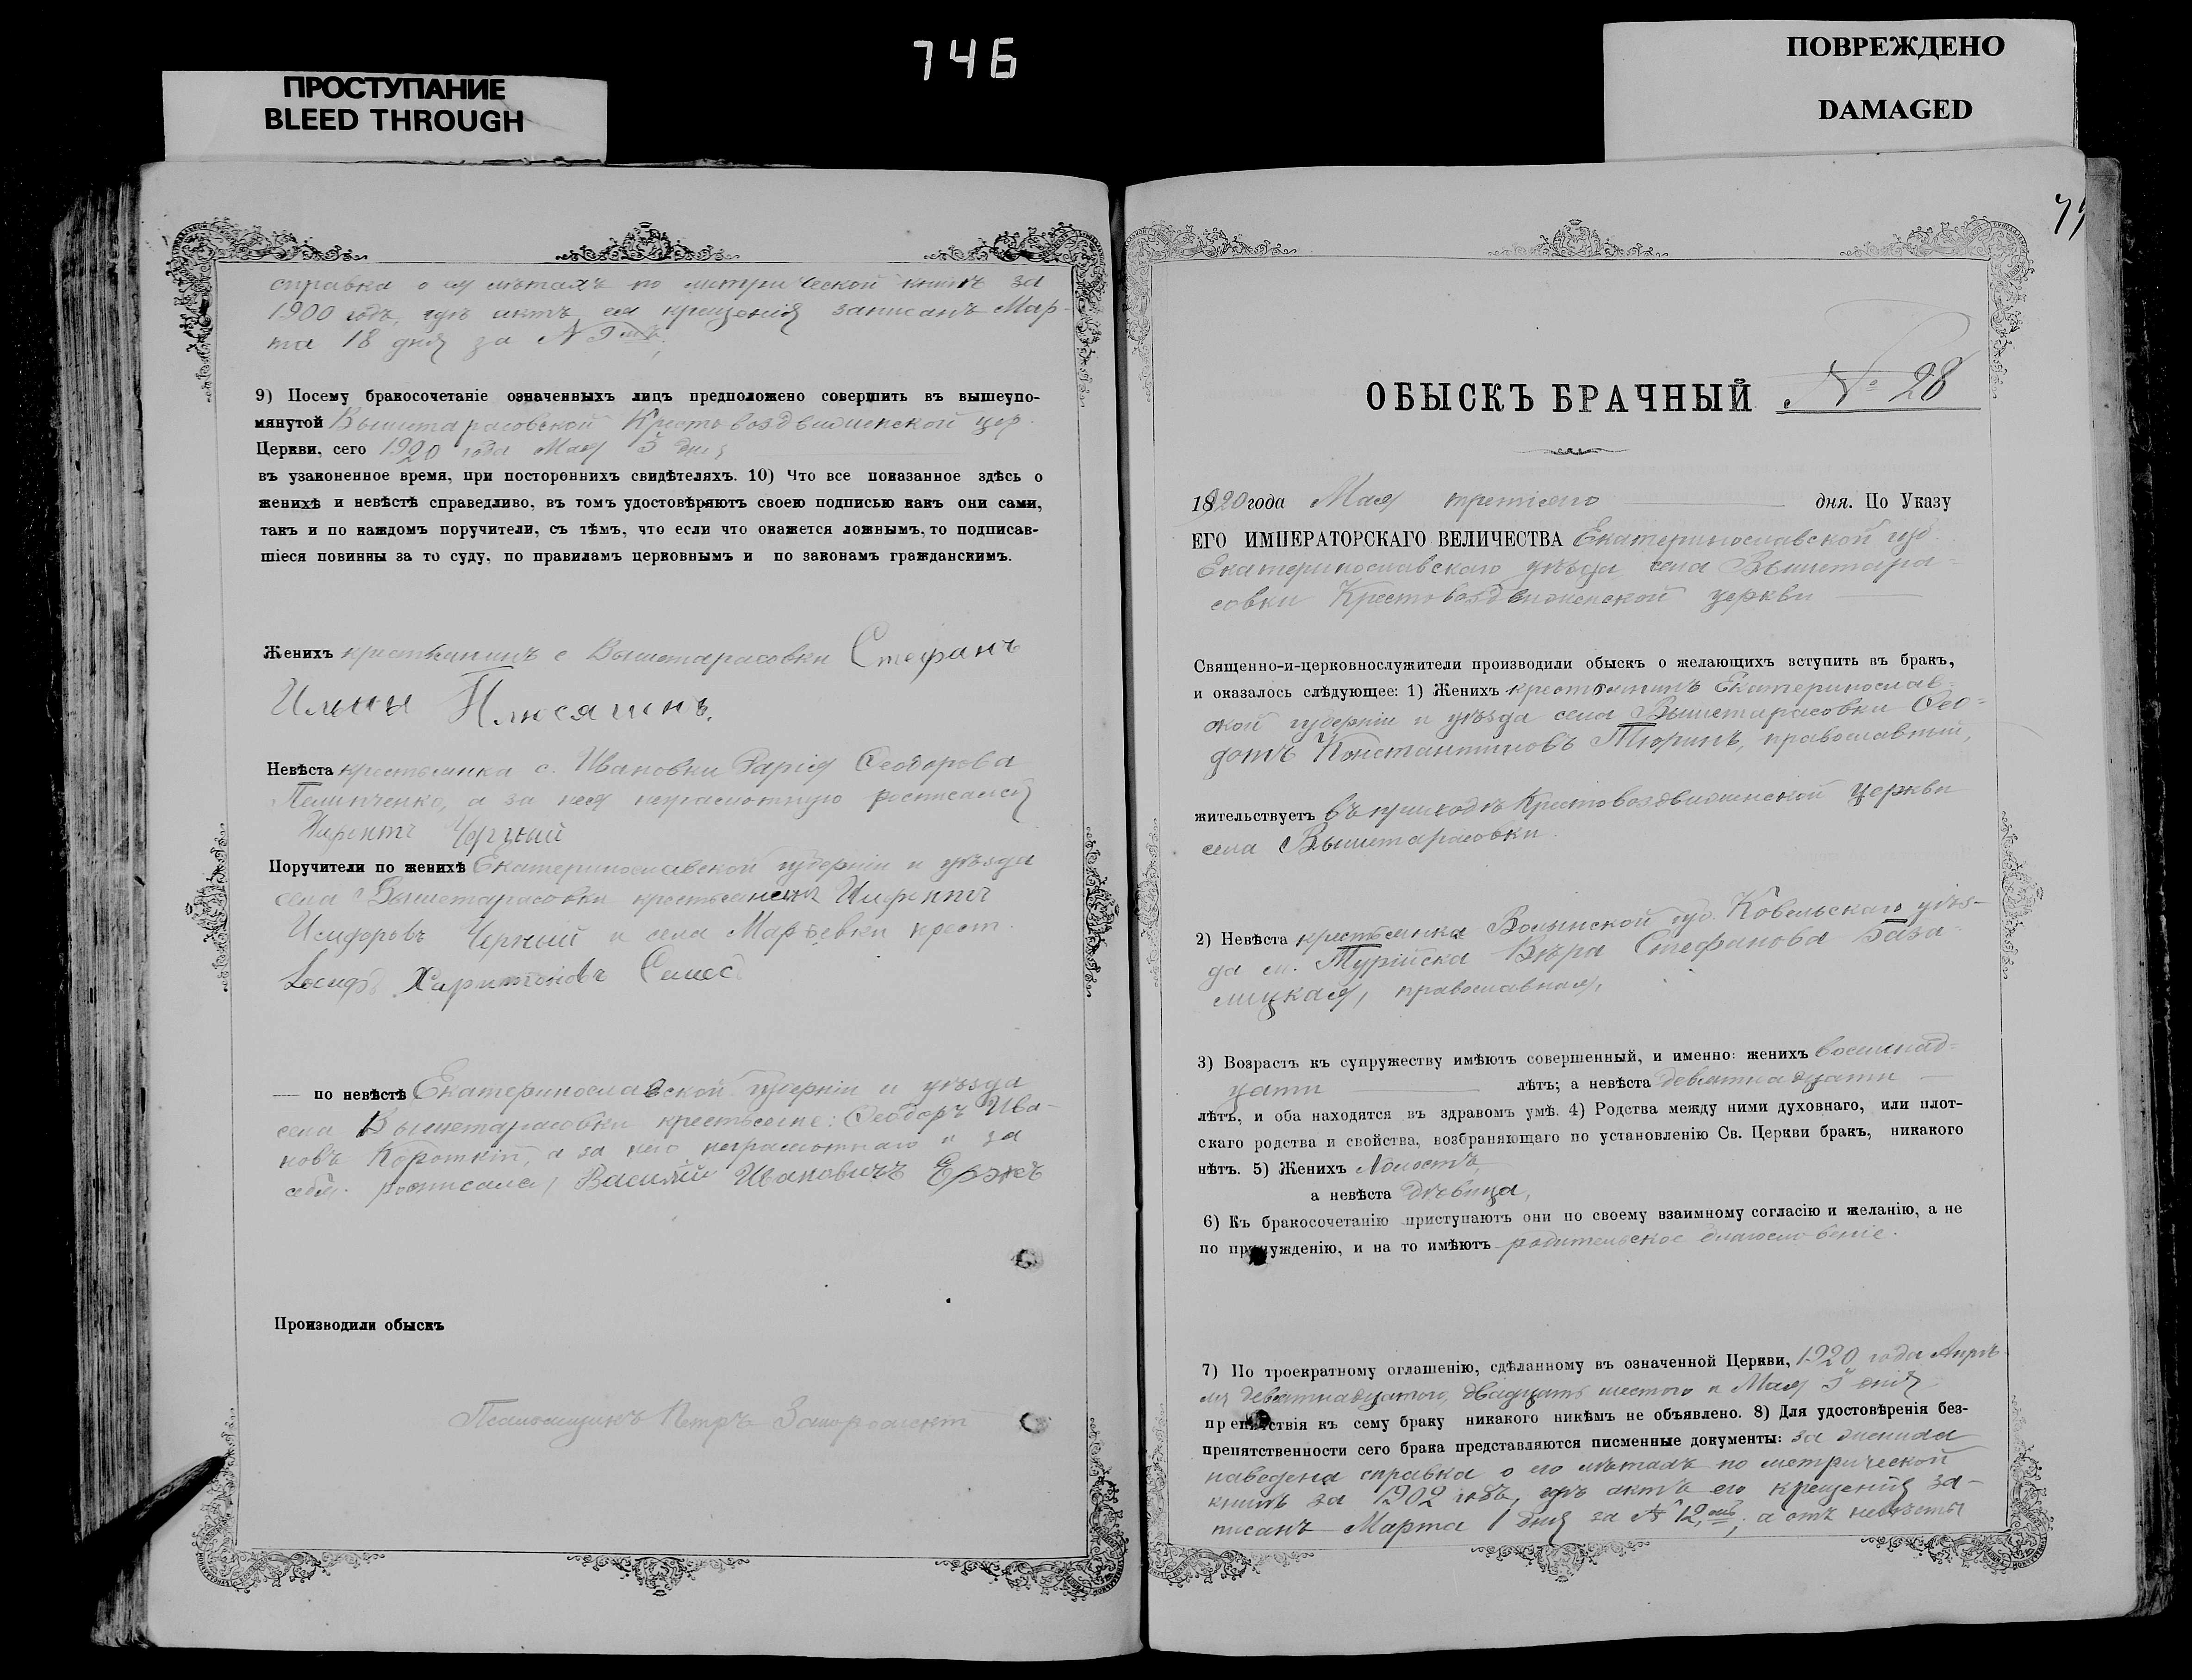 746
ПРОСТУПАНИЕ
BLEED THROUGH
ПОВРЕЖДЕНО
DAMAGED
справка о ея лѣтахъ по метрической книгѣ за
1900 годъ, гдѣ актъ ея крещенія записанъ Мар-
та 18 дня за №
9) Посему бракосочетаніе означенныхъ лицъ предположено совершить въ вышеупо-
мянутой Вышетарасовской Крестовоздвиженской цер.
Церкви, сего 1920 года Мая 3 дня
въ узаконенное время, при постороннихъ свидѣтеляхъ. 10) Что все показанное здѣсь о
женихѣ и невѣстѣ справедливо, въ томъ удостовѣряютъ своею подписью какъ они сами,
такъ и по каждомъ поручители, съ тѣмъ, что если что окажется ложнымъ, то подписав-
шіеся повинны за то суду, по правиламъ церковнымъ и по законамъ гражданскимъ.
Женихъ крестьянинъ с Вышетарасовки Стефанъ
Ильинъ
Невѣста крестьянка с. Ивановки Дарія Ѳеодорова
а за нея неграмотную росписался
Черный
Поручители по женихѣ Екатеринославской губерніи и уѣзда
села Вышетарасовки
Исидоровъ Черный и села Марьевки крест.
Іосифъ Харитоновъ
— по невѣстѣ Екатеринославской губерніи и уѣзда
села Вышетарасовки крестьяне: Ѳеодоръ Ива-
новъ Короткій, а за него неграмотнаго и за
себя росписался Василій Ивановичъ
Производили обыскъ
Псаломщикъ Петръ
ОБЫСКЪ БРАЧНЫЙ № 28
1920 года Мая третьяго дня. По Указу
ЕГО ИМПЕРАТОРСКАГО ВЕЛИЧЕСТВА Екатеринославской губ.
Екатеринославскаго уѣзда села Вышетара-
совки Крестовоздвиженской церкви
Священно-и-церковнослужители производили обыскъ о желающихъ вступить въ бракъ,
и оказалось слѣдующее: 1) Женихъ крестьянинъ Екатеринослав-
ской губерніи и уѣзда села Вышетарасовки Ѳео-
дотъ Константиновъ Тюринъ, православный,
жительствуетъ въ приходѣ Крестовоздвиженской церкви
села Вышетарасовки.
2) Невѣста крестьянка Волынской губ. Ковельскаго уѣз-
да м. Турійска Вѣра Стефанова База-
лицкая, православная,
3) Возрастъ къ супружеству имѣютъ совершенный, и именно: женихъ восемнад-
цати лѣтъ; а невѣста девятнадцати
лѣтъ, и оба находятся въ здравомъ умѣ. 4) Родства между ними духовнаго, или плот-
скаго родства и свойства, возбраняющаго по установленію Св. Церкви бракъ, никакого
нѣтъ. 5) Женихъ холостъ,
а невѣста дѣвица,
6) Къ бракосочетанію приступаютъ они по своему взаимному согласію и желанію, а не
по принужденію, и на то имѣютъ родительское благословеніе.
7) По троекратному оглашенію, сдѣланному въ означенной Церкви, 1920 года Апрѣ-
ля девятнадцатого, двадцать шестого и Мая 3 дня
препятствія къ сему браку никакого никѣмъ не объявлено. 8) Для удостовѣренія без-
препятственности сего брака представляются писменные документы: за жениха
наведена справка о его лѣтахъ по метрической
книгѣ за 1902 годъ, гдѣ актъ его крещенія за-
писанъ Марта 1 дня за № 12; а отъ невѣсты